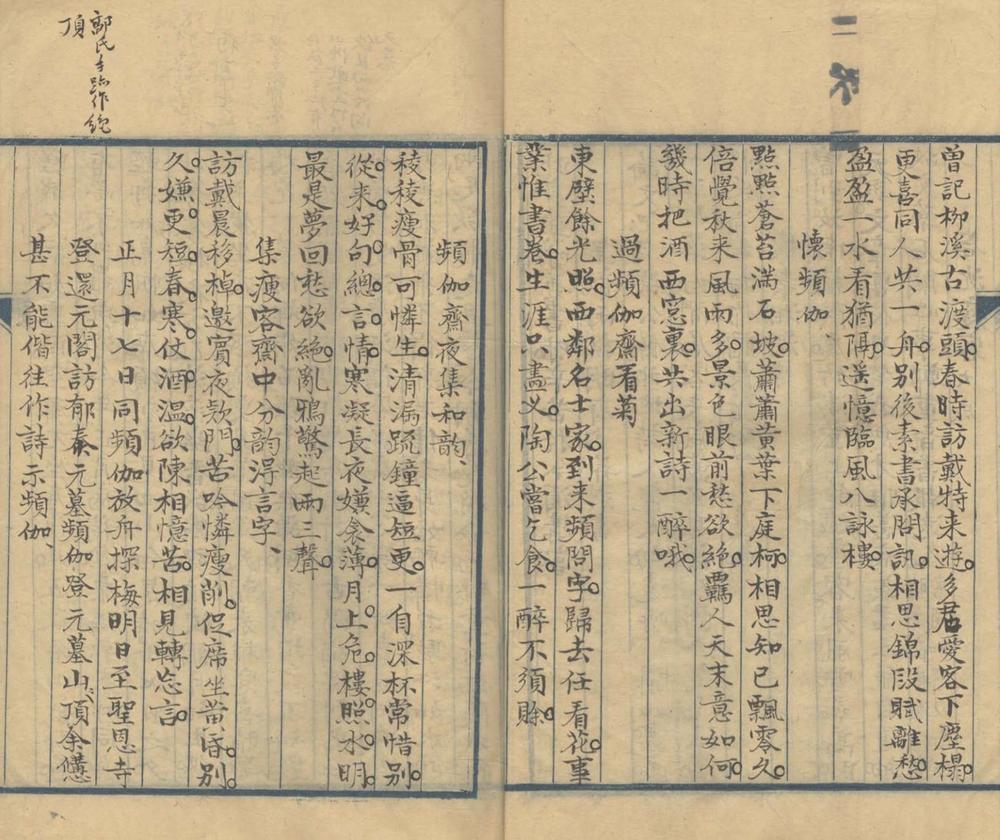 曽記柳溪古渡頭春時訪戴特来遊多君愛客下塵榻
更喜同人共一舟别後素書承問訊相思錦段賦離愁
盈盈一水看猶隔遥憶臨風八詠樓
懷頻伽
點點蒼苔満石坡蕭蕭黄葉下庭柯相思知己飄零久
倍覺秋来風雨多景色眼前愁欲絶羈人天末意如何
幾時把酒西窓裏共出新詩一醉哦
過頻伽齋看菊
東壁餘光照西鄰名士家到来頻問字歸去任看花事
業惟書卷生涯只畫叉陶公嘗乞食一醉不須賒
頻伽齋夜集和韵
稜稜瘦骨可憐生清漏疏鐘逼短更一自深杯常惜别
從来好句總言情寒凝長夜嫌衾薄月上危樓照水明
最是夢回愁欲絶亂鴉驚起兩三聲
集瘦客齋中分韵得言字
訪戴晨移棹邀賓夜欵門苦吟憐瘦削促席坐黄昏别
久嫌更短春寒仗酒温欲陳相憶苦相見轉忘言
正月十七日同頻伽放舟探梅明日至聖恩寺
登還元閣訪郁泰元墓頻伽登元墓山頂余憊
甚不能偕往作詩示頻伽
鄭氏手臨作絶
頂